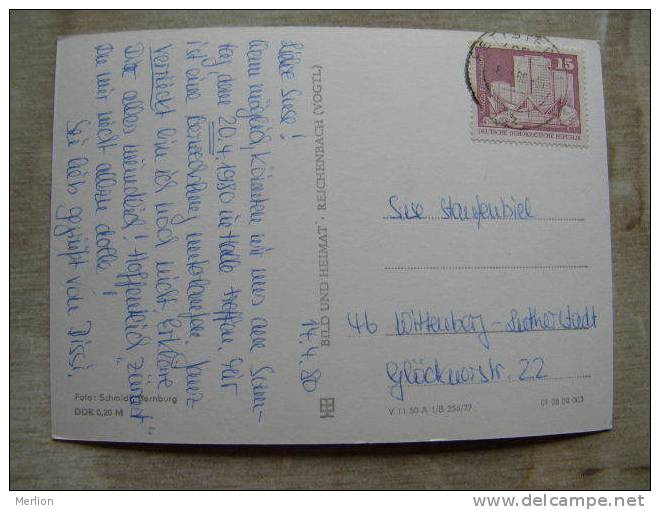 17.4.80
Liebe Suse!
Wenn möglich, könnten wir uns am Sonn-
tag, dem 20.4.1980 in Halle treffen. Mir
ist eine Verwechslung unterlaufen. Ganz
verrückt bin ich noch nicht. Erkläre
Dir alles mündlich! Hoffentlich zürnst
Du mir nicht allzu dolle!
Sei lieb gegrüßt von Dissi.
Foto: Schmidt, Bernburg
DDR 0,20 M
BILD UND HEIMAT · REICHENBACH (VOGTL)
15
DEUTSCHE DEMOKRATISCHE REPUBLIK
Suse Staufenbiel
46 Wittenberg-Lutherstadt
Glöcknerstr. 22
V 11 50 A 1/B 256/77
01 08 09 003
Merlion
http://www.delcampe.net